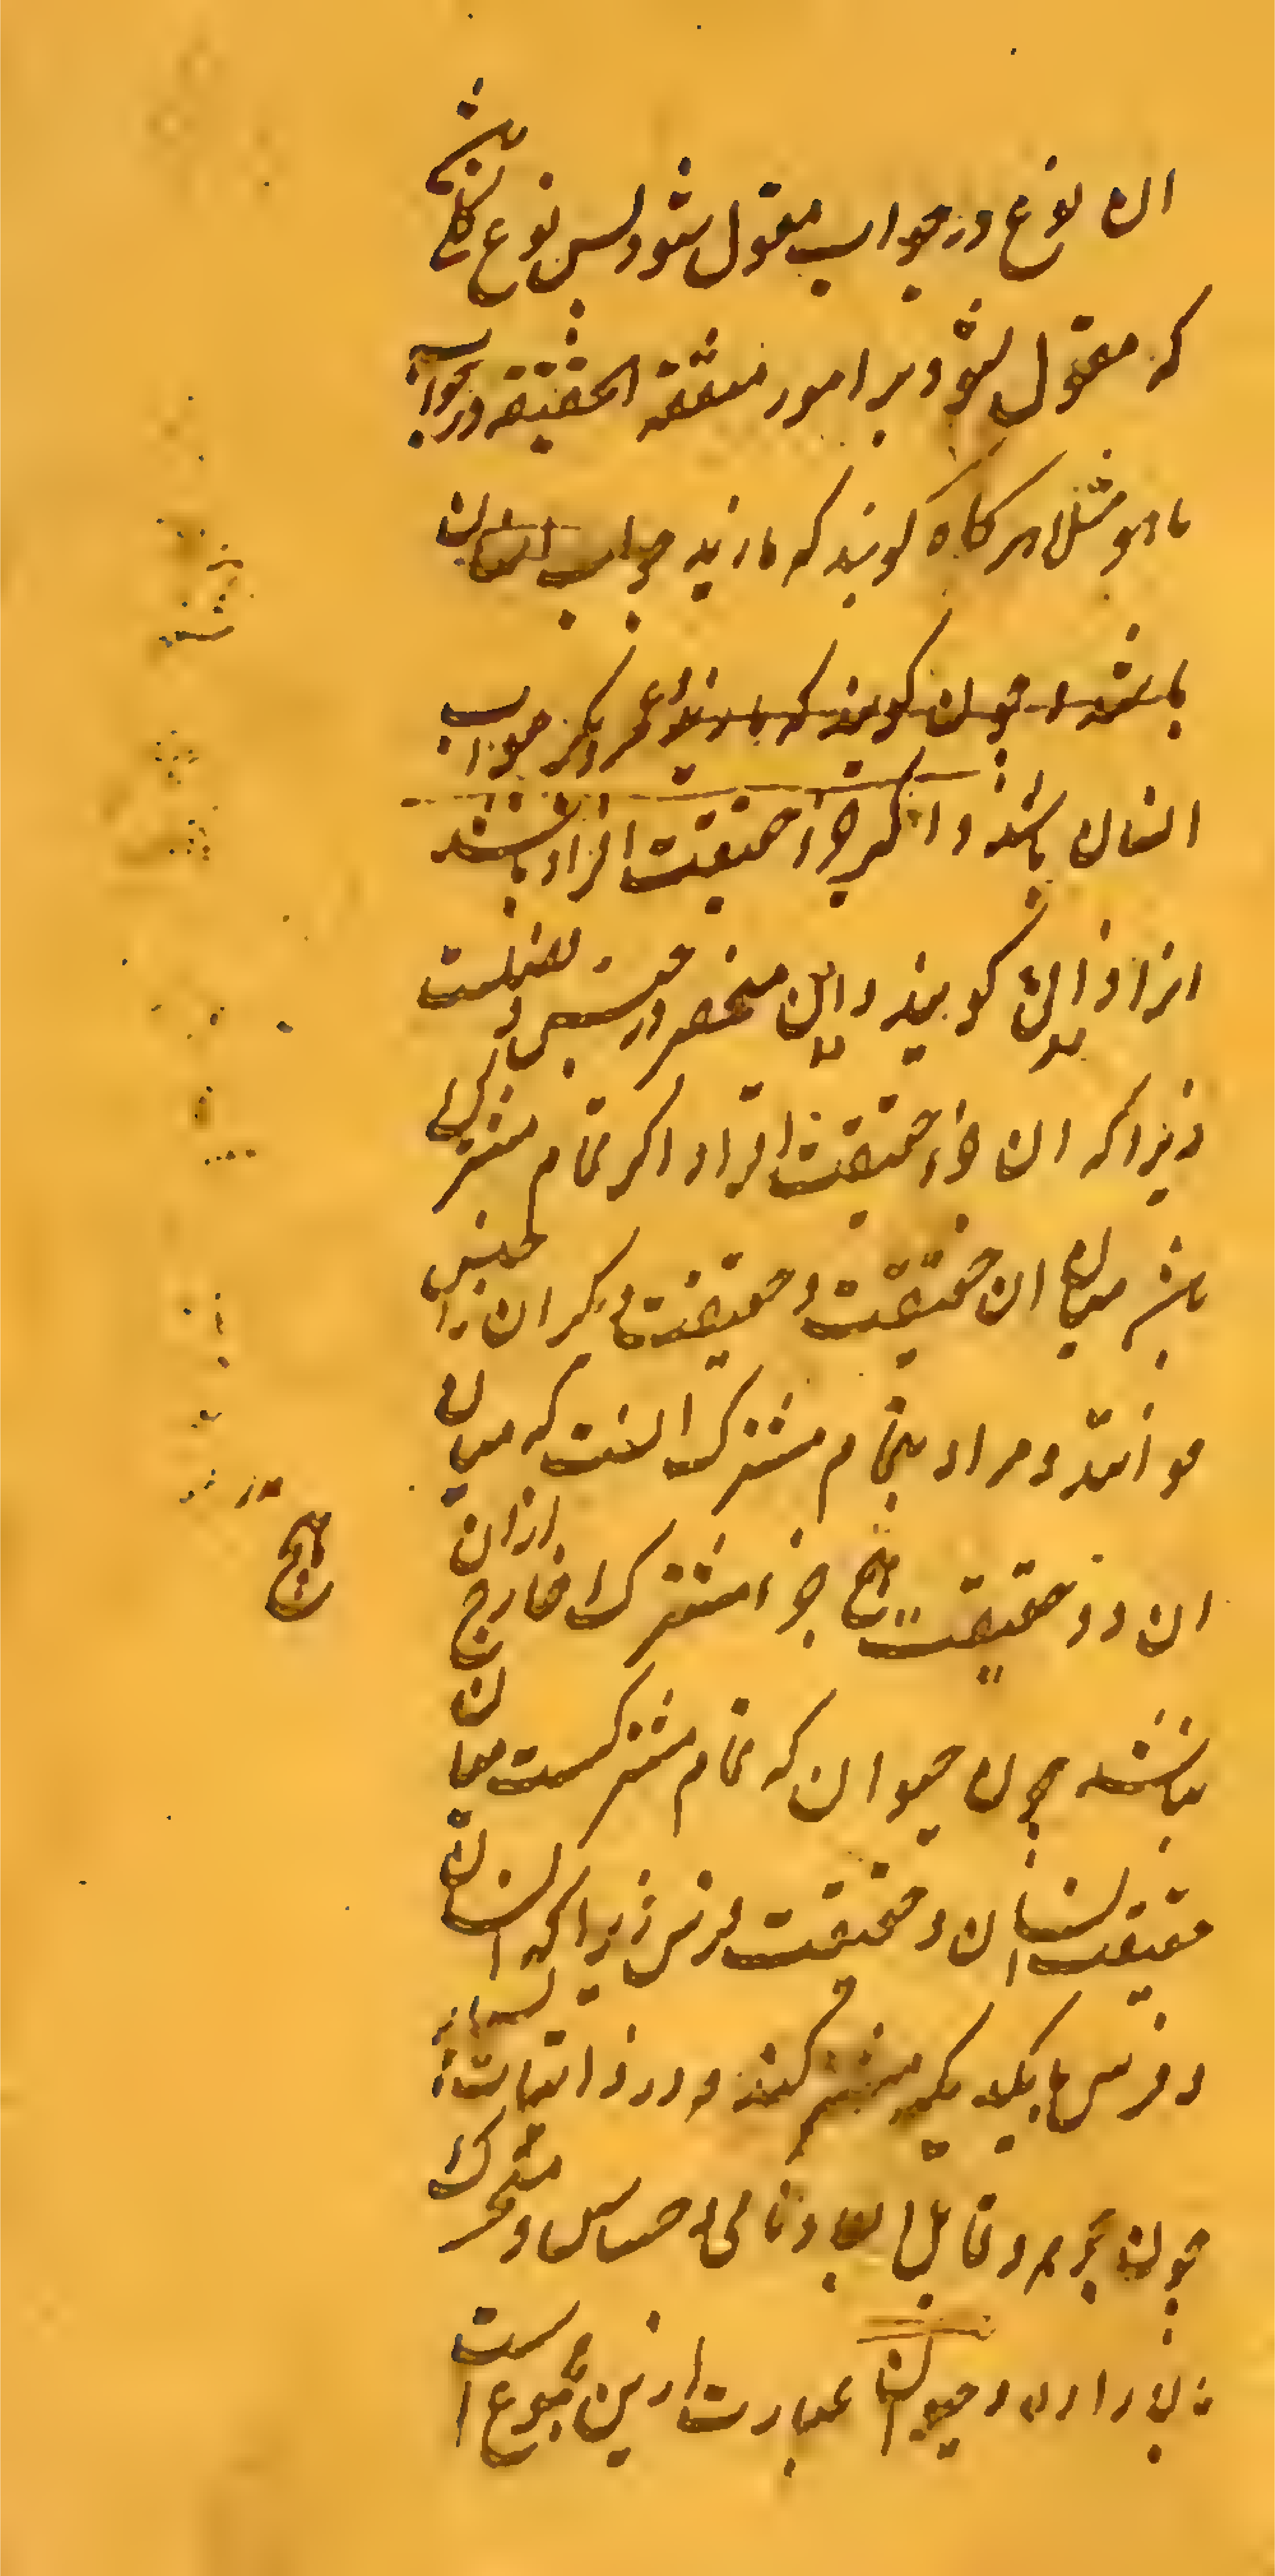 ان نوع در جواب مقول شود پس نوع کلی باشد
که مقول شود بر امور متفقة الحقیقه در جواب
ما هو مثلا هر کاه کویند که ما زید جواب انسان
باشد و چون کویند که ما زید و عمر و بکر جواب
انسان باشد و اکر جزء حقیقت افراد باشد
انرا ذاتی کویند و این منحصر در جنس و فصلست
زیرا که ان جزء حقیقت افراد اکر تمام مشترک
باشد میان ان حقیقت و حقیقت دیکر ان را جنس
خوانند و مراد بتمام مشترک انست که میان
ان دو حقیقت هیچ جزء مشترک خارج ازان
نباشد چون حیوان که تمام مشترکست میان
حقیقت انسان و حقیقت فرس زیرا که انسان
و فرس با یکدیکر مشترکند در ذاتیات بسیار
چون جوهر و قابل ابعاد و نامی و حساس و متحرک
بالاراده و حیوان عبارت ازین مجموع است
هیچ